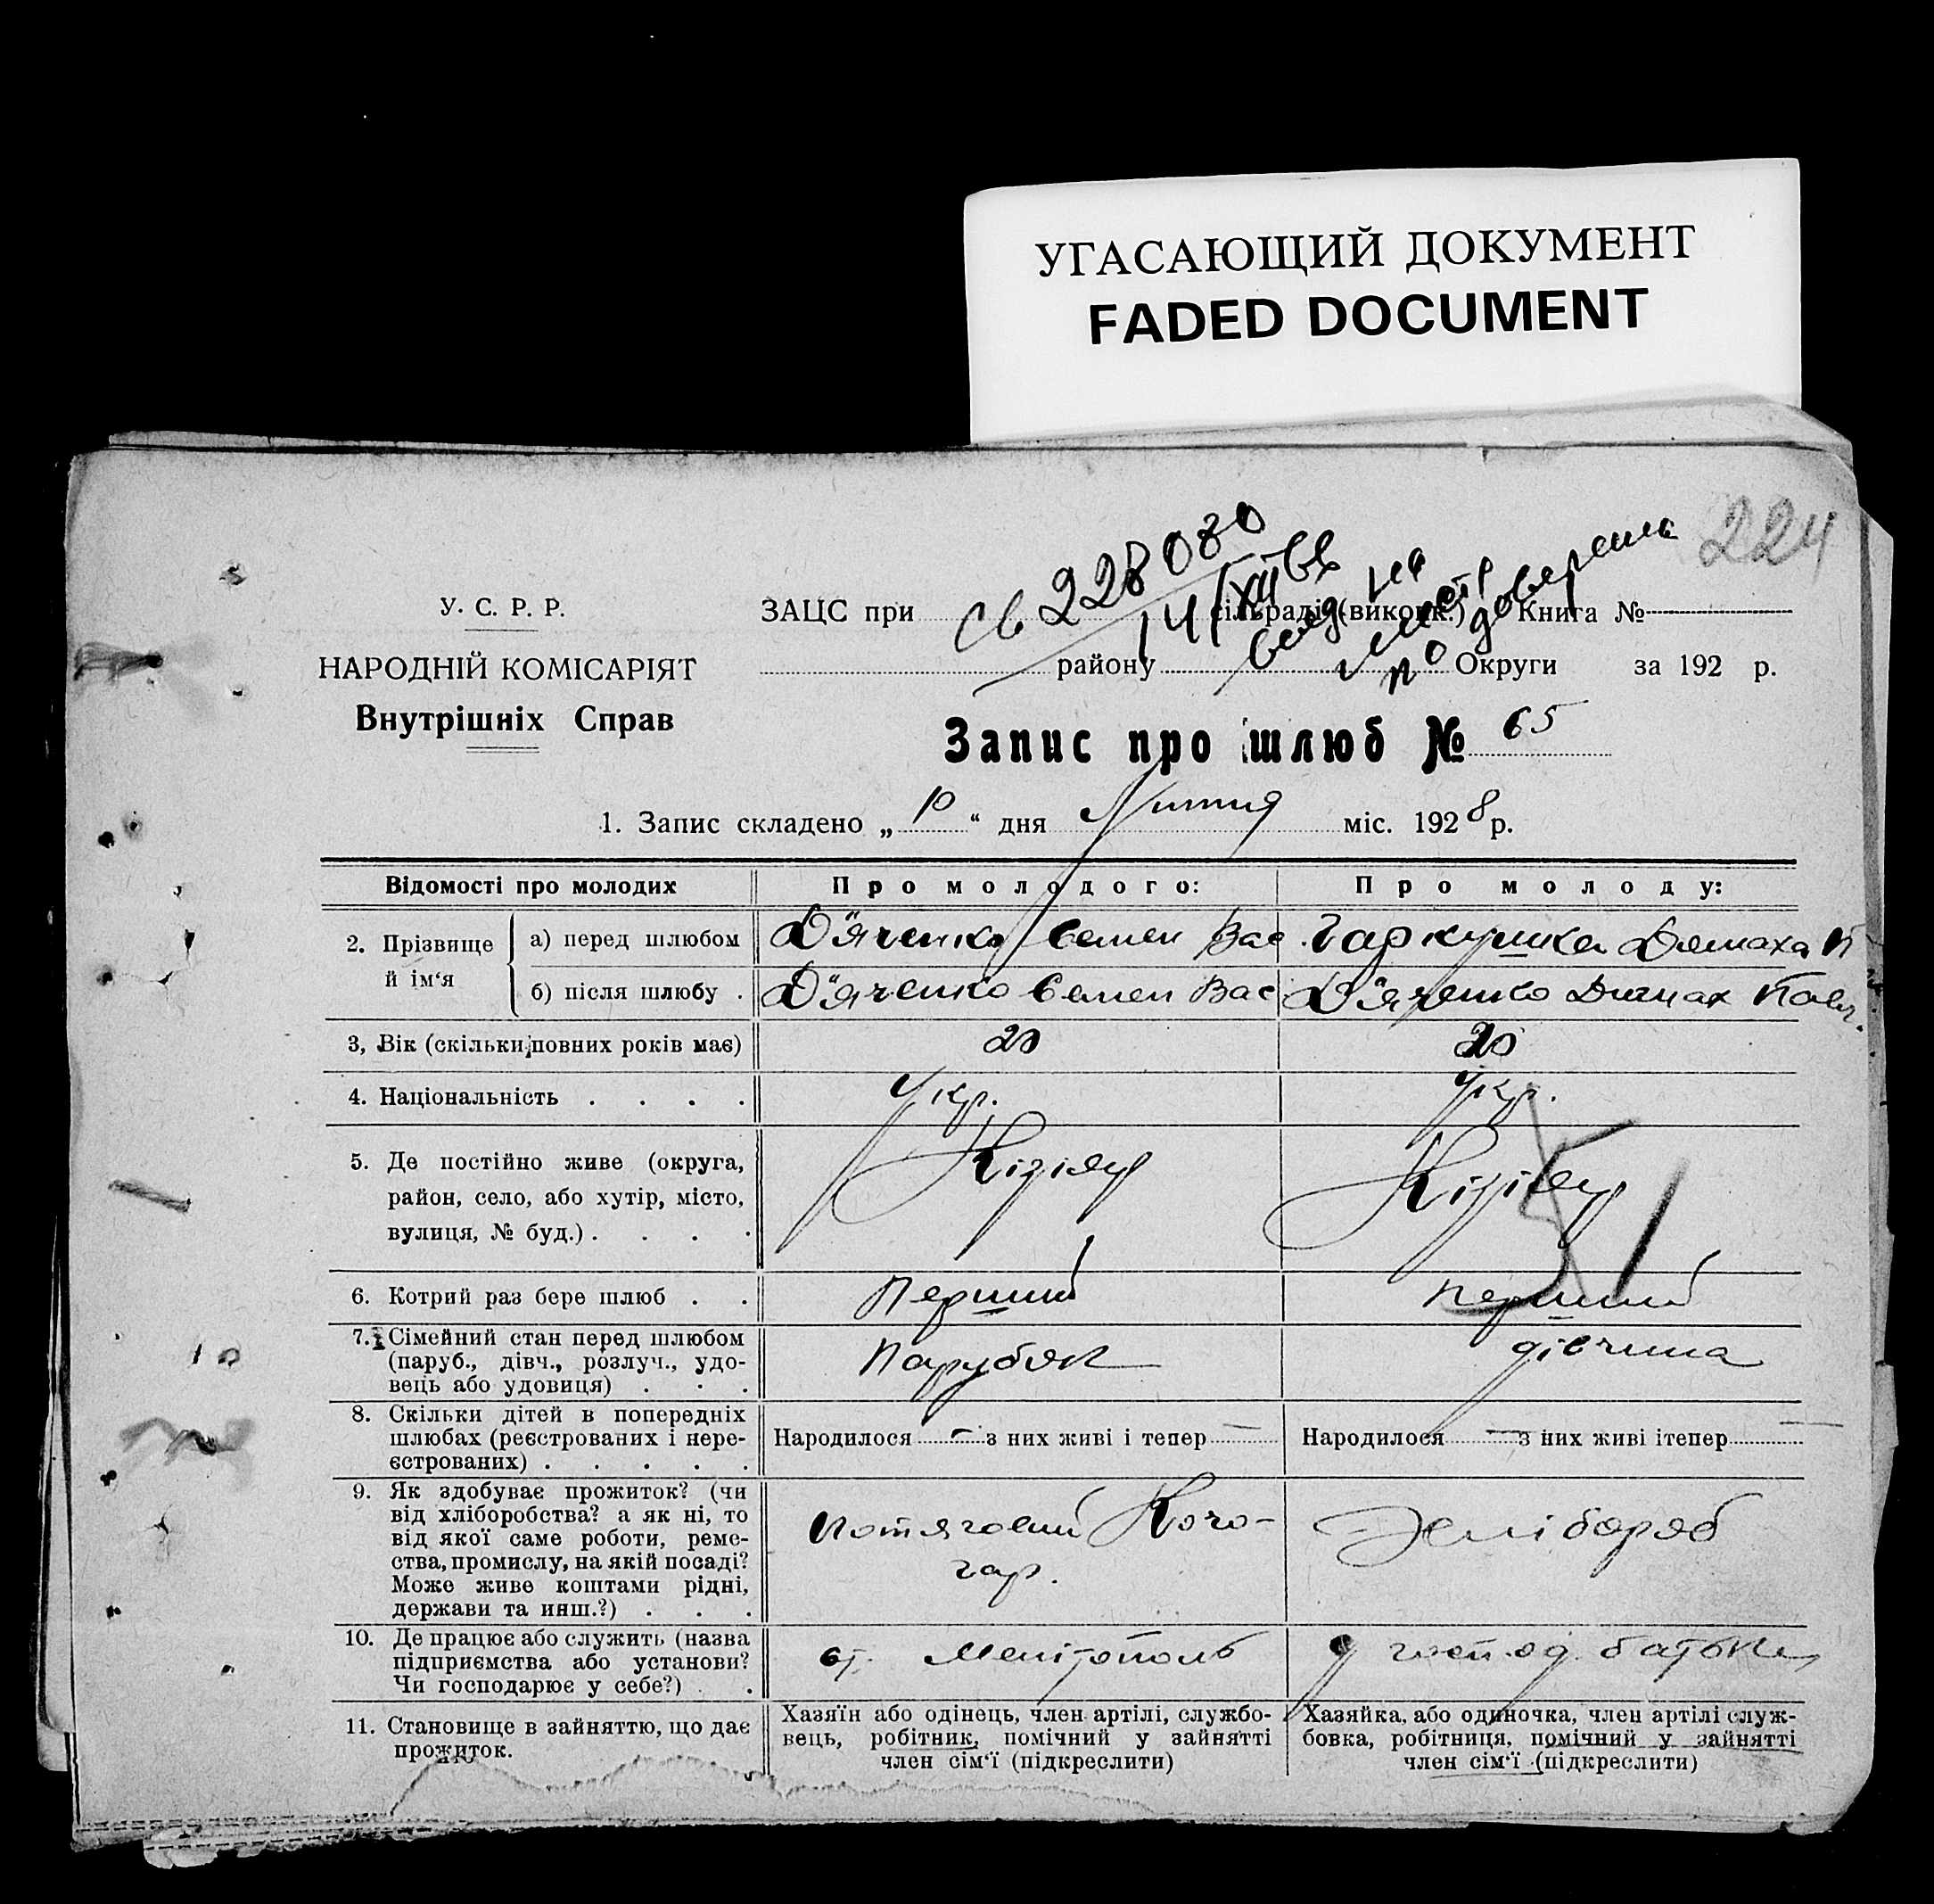 УГАСАЮЩИЙ ДОКУМЕНТ
FADED DOCUMENT
224
св 228080
14/XII
по доверень
У. С. Р. Р.
НАРОДНІЙ КОМІСАРІЯТ
Внутрішніх Справ
ЗАЦС при сільраді (виконк.) Книга №
району Округи за 192 р.
Запис про шлюб № 65
1. Запис складено „10“ дня Липня міс. 1928 р.
Відомості про молодих
Про молодого:
Про молоду:
2. Прізвище й ім‘я
а) перед шлюбом
Д'яченко Семен Вас
Гаркушка Домаха П
б) після шлюбу .
Д'яченко Семен Вас
Д'яченко Домах Павл.
3, Вік (скільки повних років має)
20
20
4. Національність . . . .
Укр.
Укр.
5. Де постійно живе (округа,
район, село, або хутір, місто,
вулиця, № буд.) . . . .
Кізіяр
Кізіяр
6. Котрий раз бере шлюб . .
Перший
Перший
7. Сімейний стан перед шлюбом
(паруб., дівч., розлуч., удо-
вець або удовиця) . . .
Парубяк
дівчина
8. Скільки дітей в попередніх
шлюбах (реєстрованих і нере-
єстрованих) . . . . .
Народилося — з них живі і тепер —
Народилося — з них живі ітепер —
9. Як здобуває прожиток? (чи
від хліборобства? а як ні, то
від якої саме роботи, реме-
ства, промислу, на якій посаді?
Може живе коштами рідні,
держави та инш.?) . . .
Потяговий Коче-
гар.
10. Де працює або служить (назва
підприємства або установи?
Чи господарює у себе?) . .
ст. Мелітополь
у господ. батька
11. Становище в зайняттю, що дає
прожиток.
Хазяїн або одінець, член артілі, службо-
вець, робітник, помічний у зайнятті
член сім‘ї (підкреслити)
Хазяйка, або одиночка, член артілі служ-
бовка, робітниця, помічний у зайнятті
член сім‘ї (підкреслити)